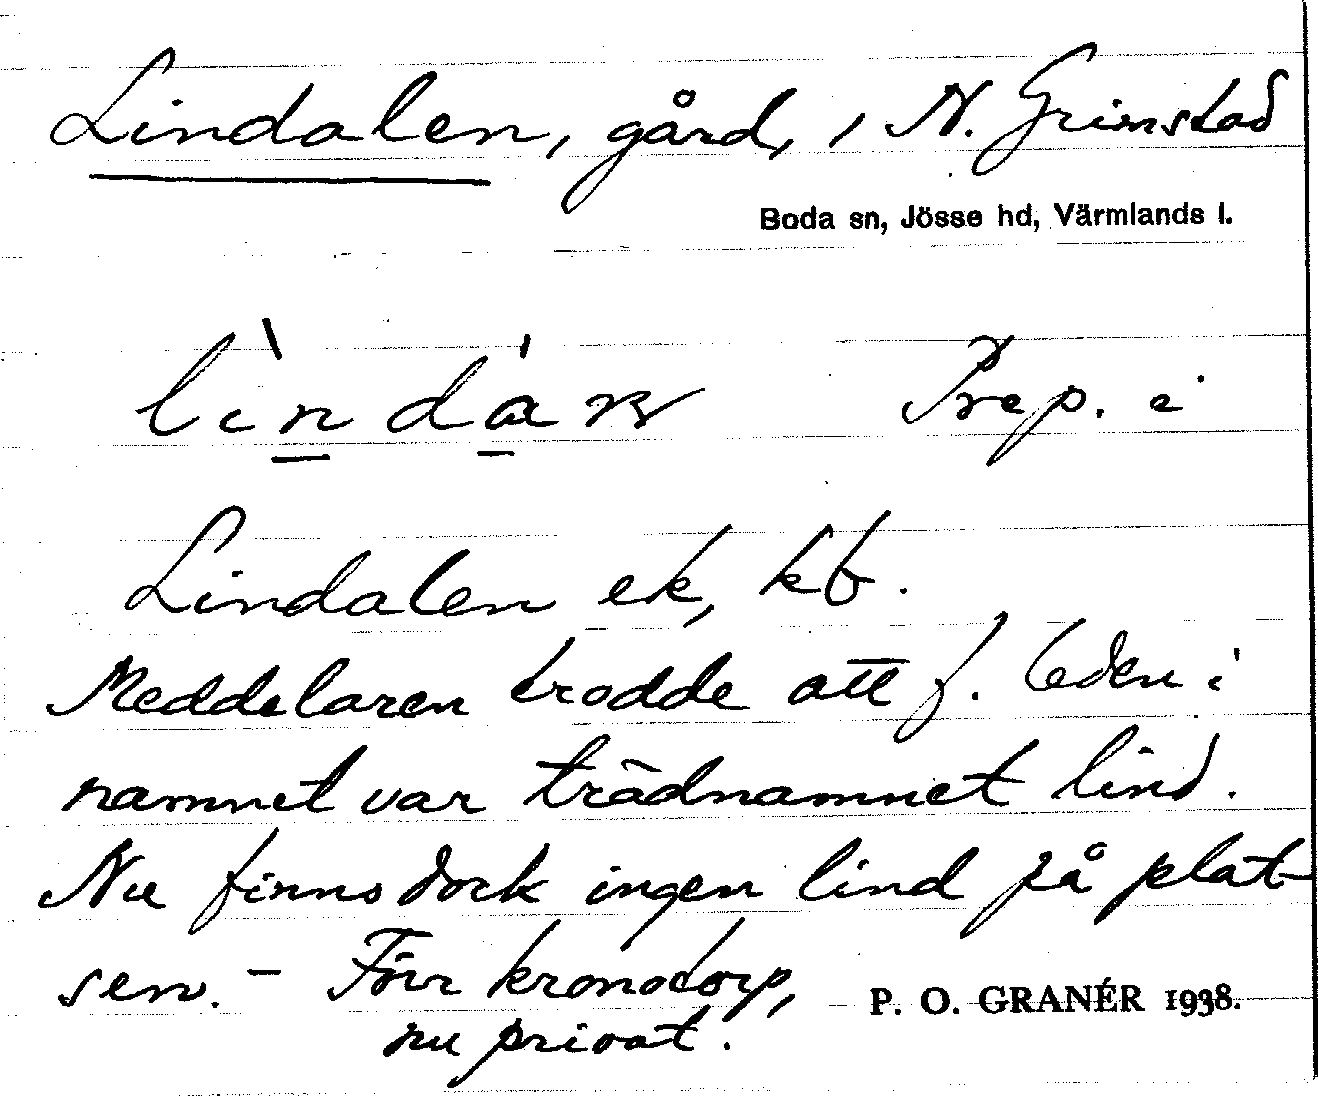 Lindalen, gård, i N. Grimstad
Boda sn, Jösse hd, Värmlands l.
Prep. i
Lindalen ek, kb.
Meddelaren trodde att f. leden i
namnet var trädnamnet lind.
Nu finns dock ingen lind på plat-
sen. - Förr kronotorp,
nu privat.
P. O. GRANÉR 1938.